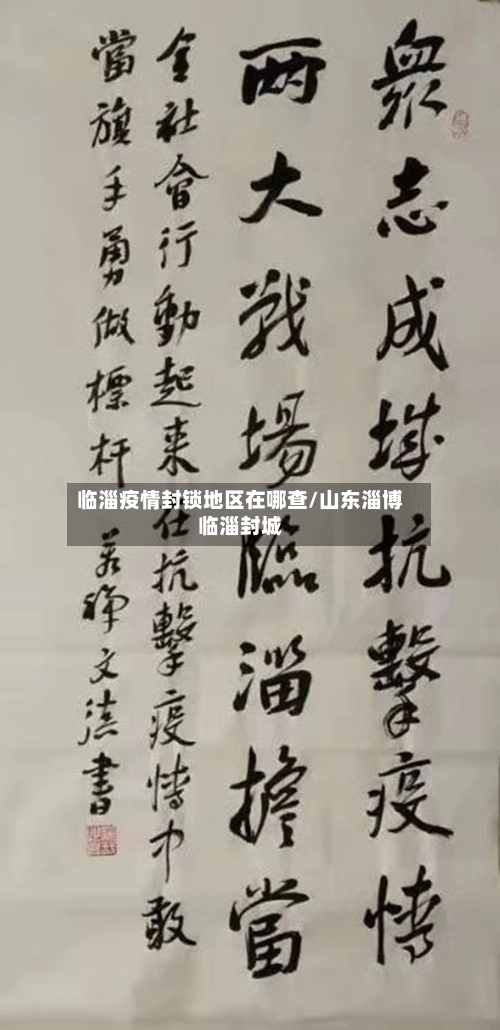 眾志成城抗擊疫情
两大戰場臨淄擔當
全社會行動起来在抗擊疫情中敢
當旗手勇做標杆
文法書
临淄疫情封锁地区在哪查/山东淄博
临淄封城